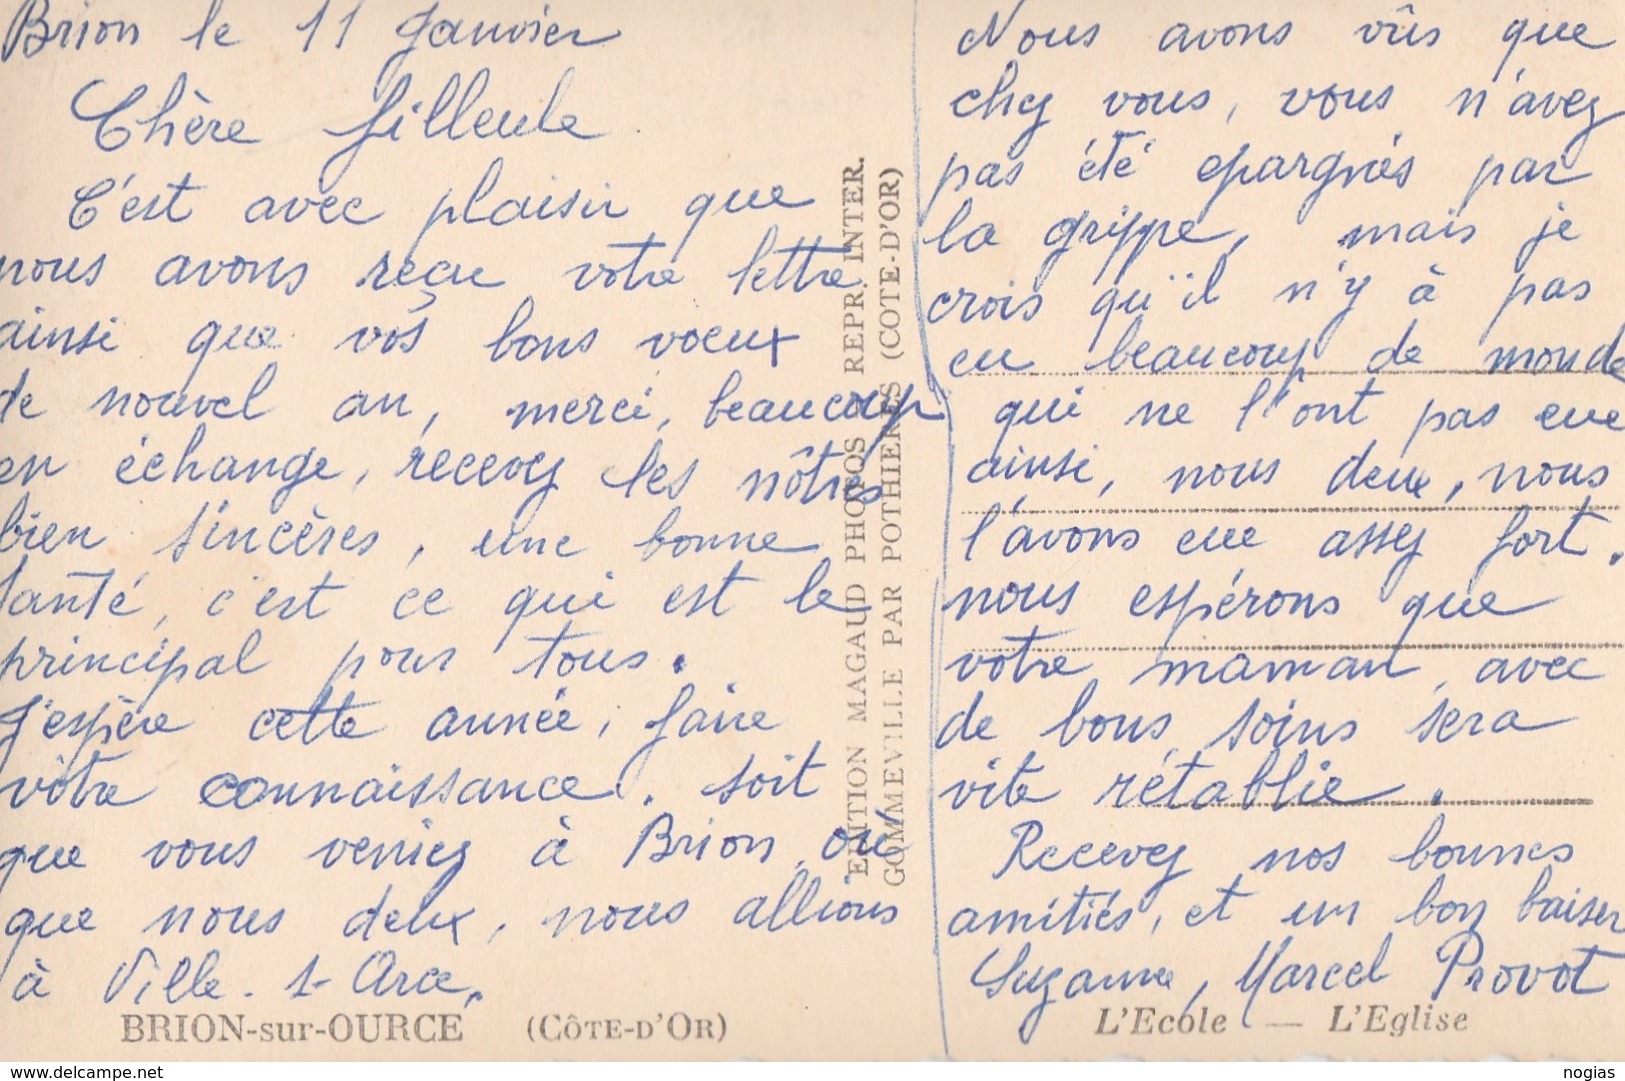 Brion le 11 Janvier
Chère filleule
C'est avec plaisir que
nous avons reçu votre lettre
ainsi que vos bons voeux
de nouvel an, merci, beaucoup
en échange, recevez les nôtres
bien sincères, une bonne
santé, c'est ce qui est le
principal pour tous.
J'espère cette année, faire
votre connaissance. soit
que vous veniez à Brion, ou
que nous deux, nous allions
à Ville. s- Arce.
BRION-sur-OURCE (CÔTE-D'OR)
EDITION MAGAUD PHOTOS REPR. INTER.
GOMMEVILLE PAR POTHIERES (COTE-D'OR)
Nous avons vûs que
chez vous, vous n'avez
pas été epargnés par
la grippe, mais je
crois qu'il n'y à pas
eu beaucoup de monde
qui ne l'ont pas eue
ainsi, nous deux, nous
l'avons eue assez fort.
nous espérons que
votre maman, avec
de bons soins sera
vite rétablie.
Recevez nos bonnes
amitiés, et un bon baiser
Suzanne, Marcel Provot
L'Ecole — L'Eglise
delcampe.net
nogias